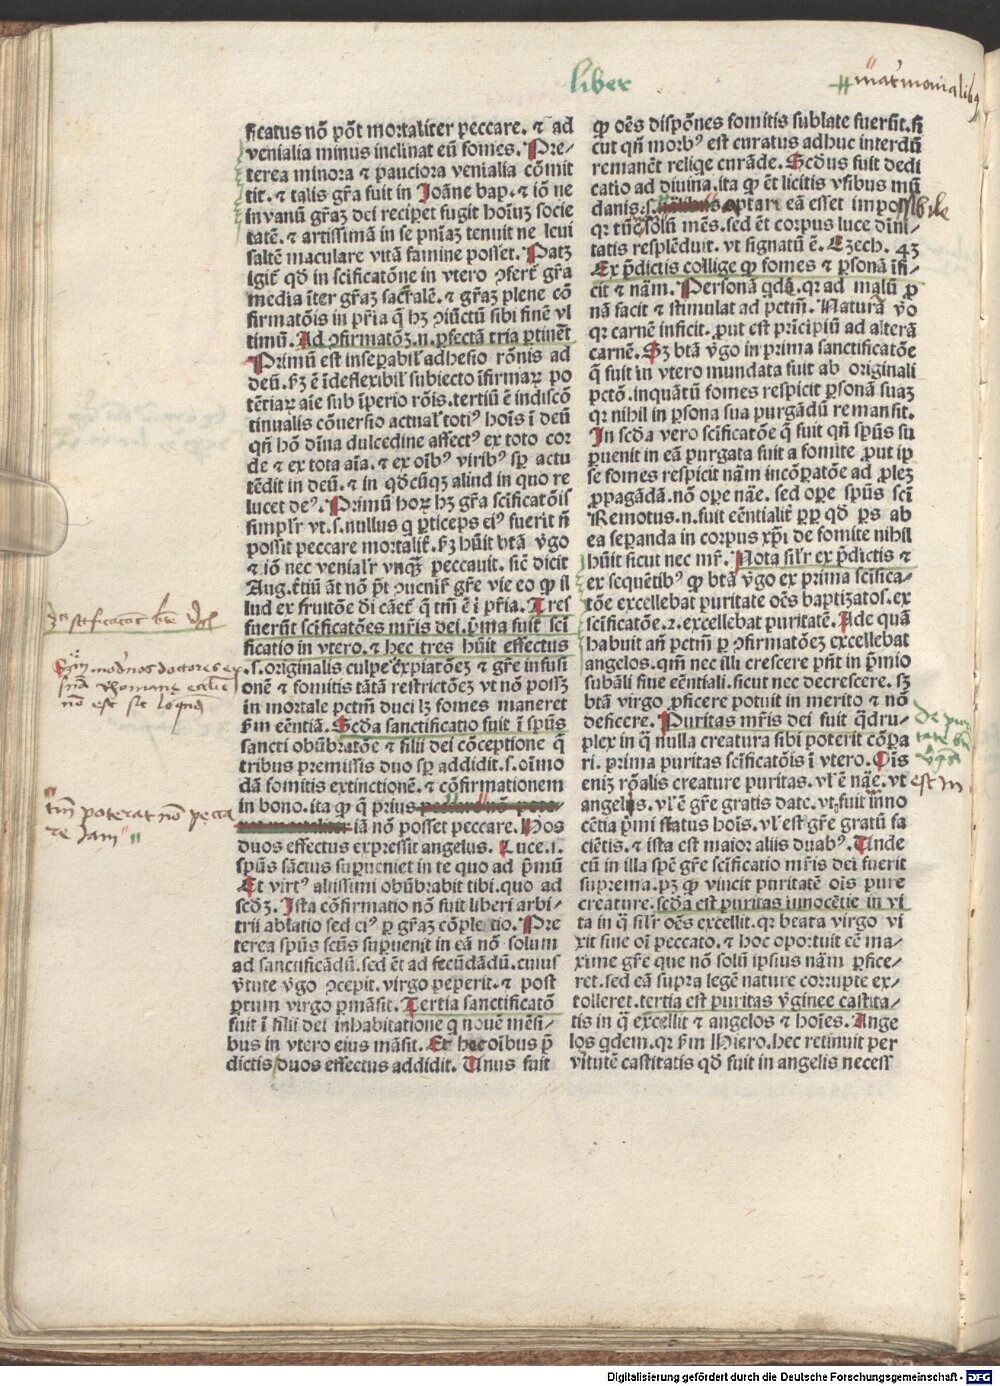 liber
matrimonialibꝰ
ficatus nō pōt mortaliter peccare. ⁊ ad
venialia minus inclinat eū fomes. Pre-
terea minora ⁊ pauciora venialia cōmit
tit. ⁊ talis gr̄a fuit in Joāne bap. ⁊ iō ne
in vanū gr̄aꝫ dei reciꝑet fugit hoīuꝫ socie
tatē. ⁊ artissimā in se pn̄iaꝫ tenuit ne leui
saltē maculare vitā famine posset. Patꝫ
igit̄ qđ in scificatōne in vtero ↄfert̄ gr̄a
media īter gr̄aꝫ sacr̄alē. ⁊ gr̄aꝫ plene cō
firmatōis in pr̄ia q̄ hꝫ ↄiūctū sibi finē vl
timū. Ad ↄfirmatōꝫ.n. ꝑfectā tria ꝑtinēt
Primū est inseꝑabil̓ adhesio rōnis ad
deū. sꝫ ē īdeflexibil̓ subiecto īfirmaꝝ po
tētiaꝝ aīe sub īperio rōis. tertiū ē indiscō
tinualis cōuersio actual̓ totiꝰ hoīs ī deū
qn̄ hō dīna dulcedine affectꝰ ex toto cor
de ⁊ ex tota aīa. ⁊ ex oībꝰ viribꝰ sꝑ actu
tēdit in deū. ⁊ in qđcūqꝫ aliud in quo re
lucet deꝰ. Primū hoꝝ hꝫ gr̄a scīficatōis
simpl̓r vt .s. nullus q ꝑticeps eiꝰ fuerit n̄
possit peccare mortalit̄. sꝫ hūit btā v̓go
⁊ iō nec venial̓r vnqꝫ peccauit. sic̄ dicit
Aug. t̓tiū āt nō pt̄ ↄuenir̓ gr̄e vie eo ꝙ il
lud ex fruitōe dī cāet̄ q̄ tm̄ ē ī pr̄ia. Tres
fuerūt scīficatōes mr̄is dei. p̄ma fuit sci
ficatio in vtero. ⁊ hec tres hūit effectus
.s. originalis culpe expiatōeꝫ ⁊ gr̄e infusi
onē ⁊ fomitis tātā restrictōeꝫ vt nō possꝫ
in mortale pctm̄ duci lꝫ fomes maneret
ẜm eēntiā. Scđa sanctificatio fuit ī spūs
sancti obūbratōe ⁊ filii dei cōceptione q̄
tribus premissis duo sꝑ addidit .s. oīmo
dā fomitis extinctionē. ⁊ cōfirmationem
in bono. ita ꝙ q̄ prius
iā nō posset peccare. Hos
duos effectus expressit angelus. Luce .1.
spūs sāctus suꝑueniet in te quo ad p̄mū
Et virtꝰ altissimi obūbrabit tibi. quo ad
scđꝫ. Ista cōfirmatio nō fuit liberi arbi-
trii ablatio sed eiꝰ ꝑ gr̄aꝫ cōpletio. Pre
terea spūs scūs suꝑuenit in eā nō solum
ad sanctificādū. sed ēt ad fecūdādū. cuius
v̓tute v̓go ↄcepit. virgo peperit. ⁊ post
ꝑtum virgo ꝑmāsit. Tertia sanctificatō
fuit ī filii dei inhabitatione q nouē mēsi-
bus in vtero eius māsit. Et hec oībus p̄
dictis duos effectus addidit. Unus fuit
ꝙ oēs dispōnes fomitis sublate fuerūt. si
cut qn̄ morbꝰ est curatus adhuc interdū
remanēt reliqe curāde. Scđus fuit dedi
catio ad diuina. ita ꝙ ēt licitis vsibus mū
danis .s. optari eā esset impossibile
qr tūc solū mēs. sed ēt corpus luce dīni-
tatis resplēduit. vt signatū ē. Ezech. 43
Ex p̄dictis collige ꝙ fomes ⁊ ꝑsonā īfi-
cit ⁊ nām. Personā qdē. qr ad malū ꝑ
nā facit ⁊ stimulat ad pctm̄. Naturā v̓o
qr carnē inficit. ꝓut est prīcipiū ad alterā
carnē. Sꝫ btā v̓go in prima sanctificatōe
q̄ fuit in vtero mundata fuit ab originali
pctō. inquātū fomes respicit ꝑsonā suaꝫ
qr nihil in ꝑsona sua purgādū remansit.
In scđa vero scīficatōe q̄ fuit qn̄ spūs su
ꝑuenit in eā purgata fuit a fomite ꝓut ip
se fomes respicit nām incōꝑatōe ad ꝓleꝫ
ꝓpagādā. nō oꝑe nāe. sed oꝑe spūs scī
Remotus .n. fuit eēntialit̄ ꝓꝑ qđ ps ab
ea seꝑanda in corpus xp̄i de fomite nihil
hūit sicut nec mr̄. Nota sil̓r ex p̄dictis ⁊
ex sequētibꝰ ꝙ btā v̓go ex prima scīfica-
tōe excellebat puritate oēs baptizatos. ex
scīficatōe .2. excellebat puritatē. Ade quā
habuit an̄ pctm̄ ꝑ ↄfirmatōeꝫ excellebat
angelos. qm̄ nec illi crescere pn̄t in p̄mio
subāli siue eēntiali. sicut nec decrescere. sꝫ
btā virgo ꝓficere potuit in merito ⁊ nō
deficere. Puritas mr̄is dei fuit q̄dru-
plex in q̄ nulla creatura sibi poterit cōꝑa
ri. prima puritas scīficatōis ī vtero. Oīs
eniꝫ rōalis creature puritas. vl̓ ē nāe. vt est in
angelis. vl̓ ē gr̄e gratis date. vt fuit inno
cētia p̄mi status hoīs. vl̓ est gr̄e gratū fa
ciētis. ⁊ ista est maior aliis duabꝰ. Unde
cū in illa spē gr̄e scīficatio mr̄is dei fuerit
suprema. pꝫ ꝙ vincit puritatē oīs pure
creature. scđa est puritas innocētie in vi
ta in q̄ sil̓r oēs excellit. qr beata virgo vi
xit sine oī peccato. ⁊ hoc oportuit eē ma-
xime gr̄e que nō solū ipsius nām ꝑfice-
ret. sed eā supra legē nature corrupte ex-
tolleret. tertia est puritas v̓ginee castita-
tis in q̄ excellit ⁊ angelos ⁊ hoīes. Ange
los qdem. qr ẜm Hiero. hec retinuit per
v̓tutē castitatis qđ fuit in angelis necess
modernos doctores
romane ecclesie
nō est sic loquend
tm̄ poterat nō pecca
re Jam
De puri
tate
Digitalisierung gefördert durch die Deutsche Forschungsgemeinschaft - DFG